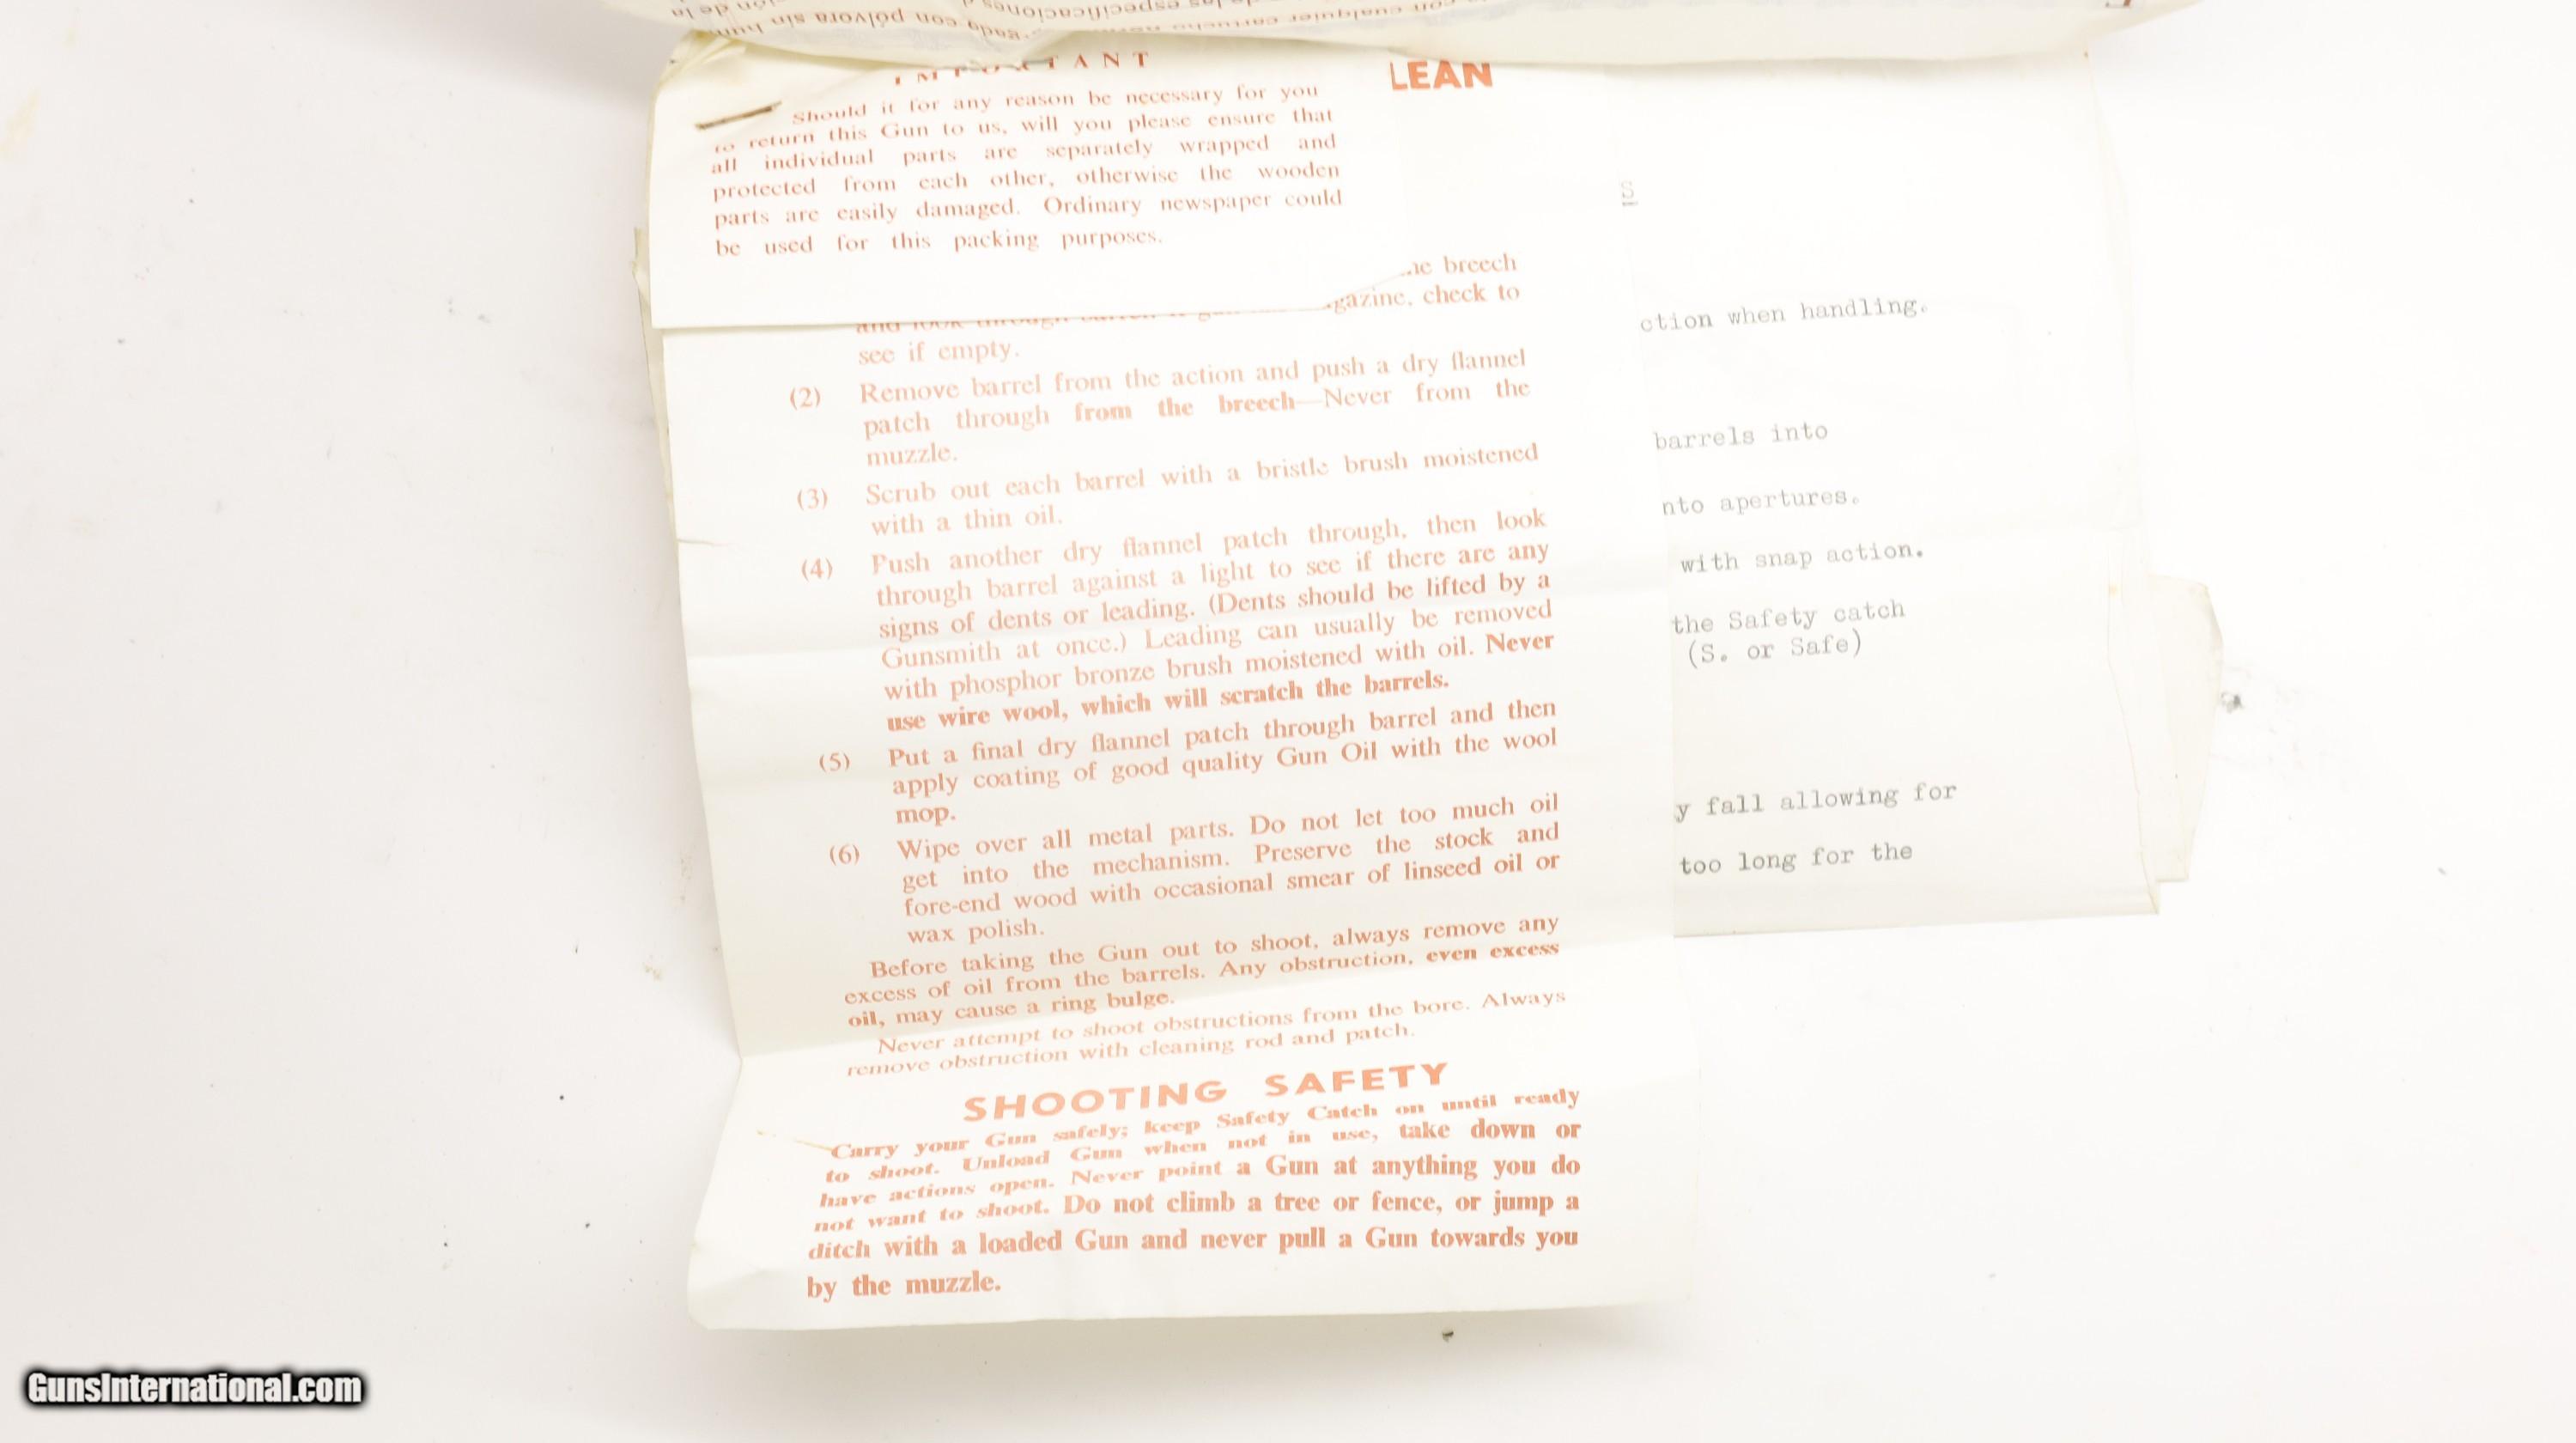 cualquier
con pólvora sin
especificaciones
IMPORTANT
Should it for any reason be necessary for you
to return this Gun to us, will you please ensure that
all individual parts are separately wrapped and
protected from each other, otherwise the wooden
parts are easily damaged. Ordinary newspaper could
be used for this packing purposes.
LEAN
breech
gazine, check to
see if empty.
(2) Remove barrel from the action and push a dry flannel
patch through from the breech—Never from the
muzzle.
(3) Scrub out each barrel with a bristle brush moistened
with a thin oil.
(4) Push another dry flannel patch through, then look
through barrel against a light to see if there are any
signs of dents or leading. (Dents should be lifted by a
Gunsmith at once.) Leading can usually be removed
with phosphor bronze brush moistened with oil. Never
use wire wool, which will scratch the barrels.
(5) Put a final dry flannel patch through barrel and then
apply coating of good quality Gun Oil with the wool
mop.
(6) Wipe over all metal parts. Do not let too much oil
get into the mechanism. Preserve the stock and
fore-end wood with occasional smear of linseed oil or
wax polish.
Before taking the Gun out to shoot, always remove any
excess of oil from the barrels. Any obstruction, even excess
oil, may cause a ring bulge.
Never attempt to shoot obstructions from the bore. Always
remove obstruction with cleaning rod and patch.
SHOOTING SAFETY
Carry your Gun safely; keep Safety Catch on until ready
to shoot. Unload Gun when not in use, take down or
have actions open. Never point a Gun at anything you do
not want to shoot. Do not climb a tree or fence, or jump a
ditch with a loaded Gun and never pull a Gun towards you
by the muzzle.
S
ction when handling.
barrels into
nto apertures.
with snap action.
the Safety catch
(S. or Safe)
y fall allowing for
too long for the
GunsInternational.com